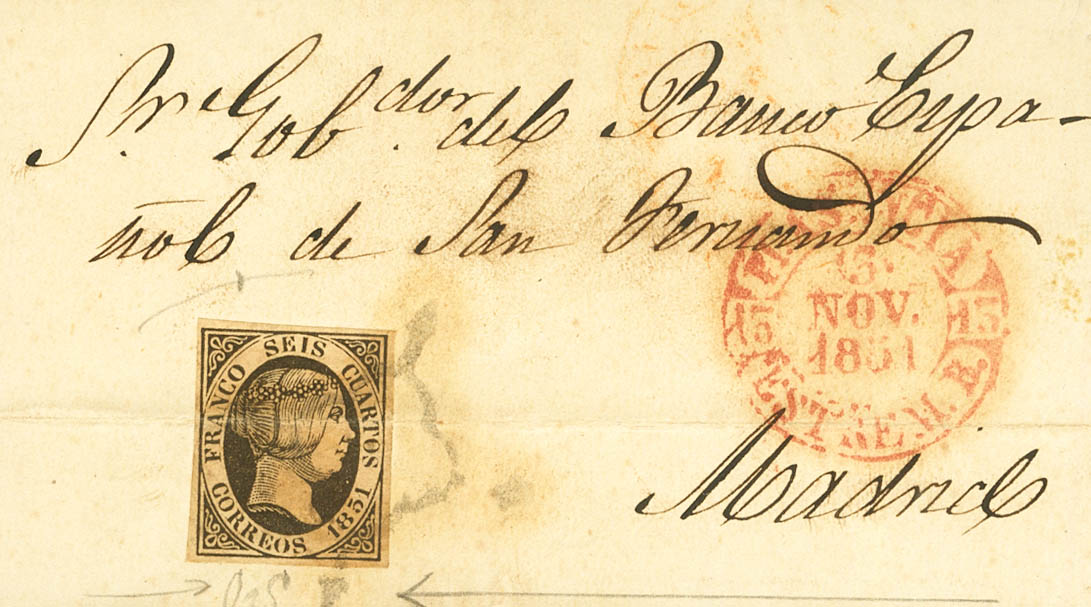 Sr. Gobdor. del Banco Espa-
ñol de San Fernando
3.
NOV.
1851
15
15
ESTREM. B.
FRANCO SEIS CUARTOS
CORREOS 1851
Madrid